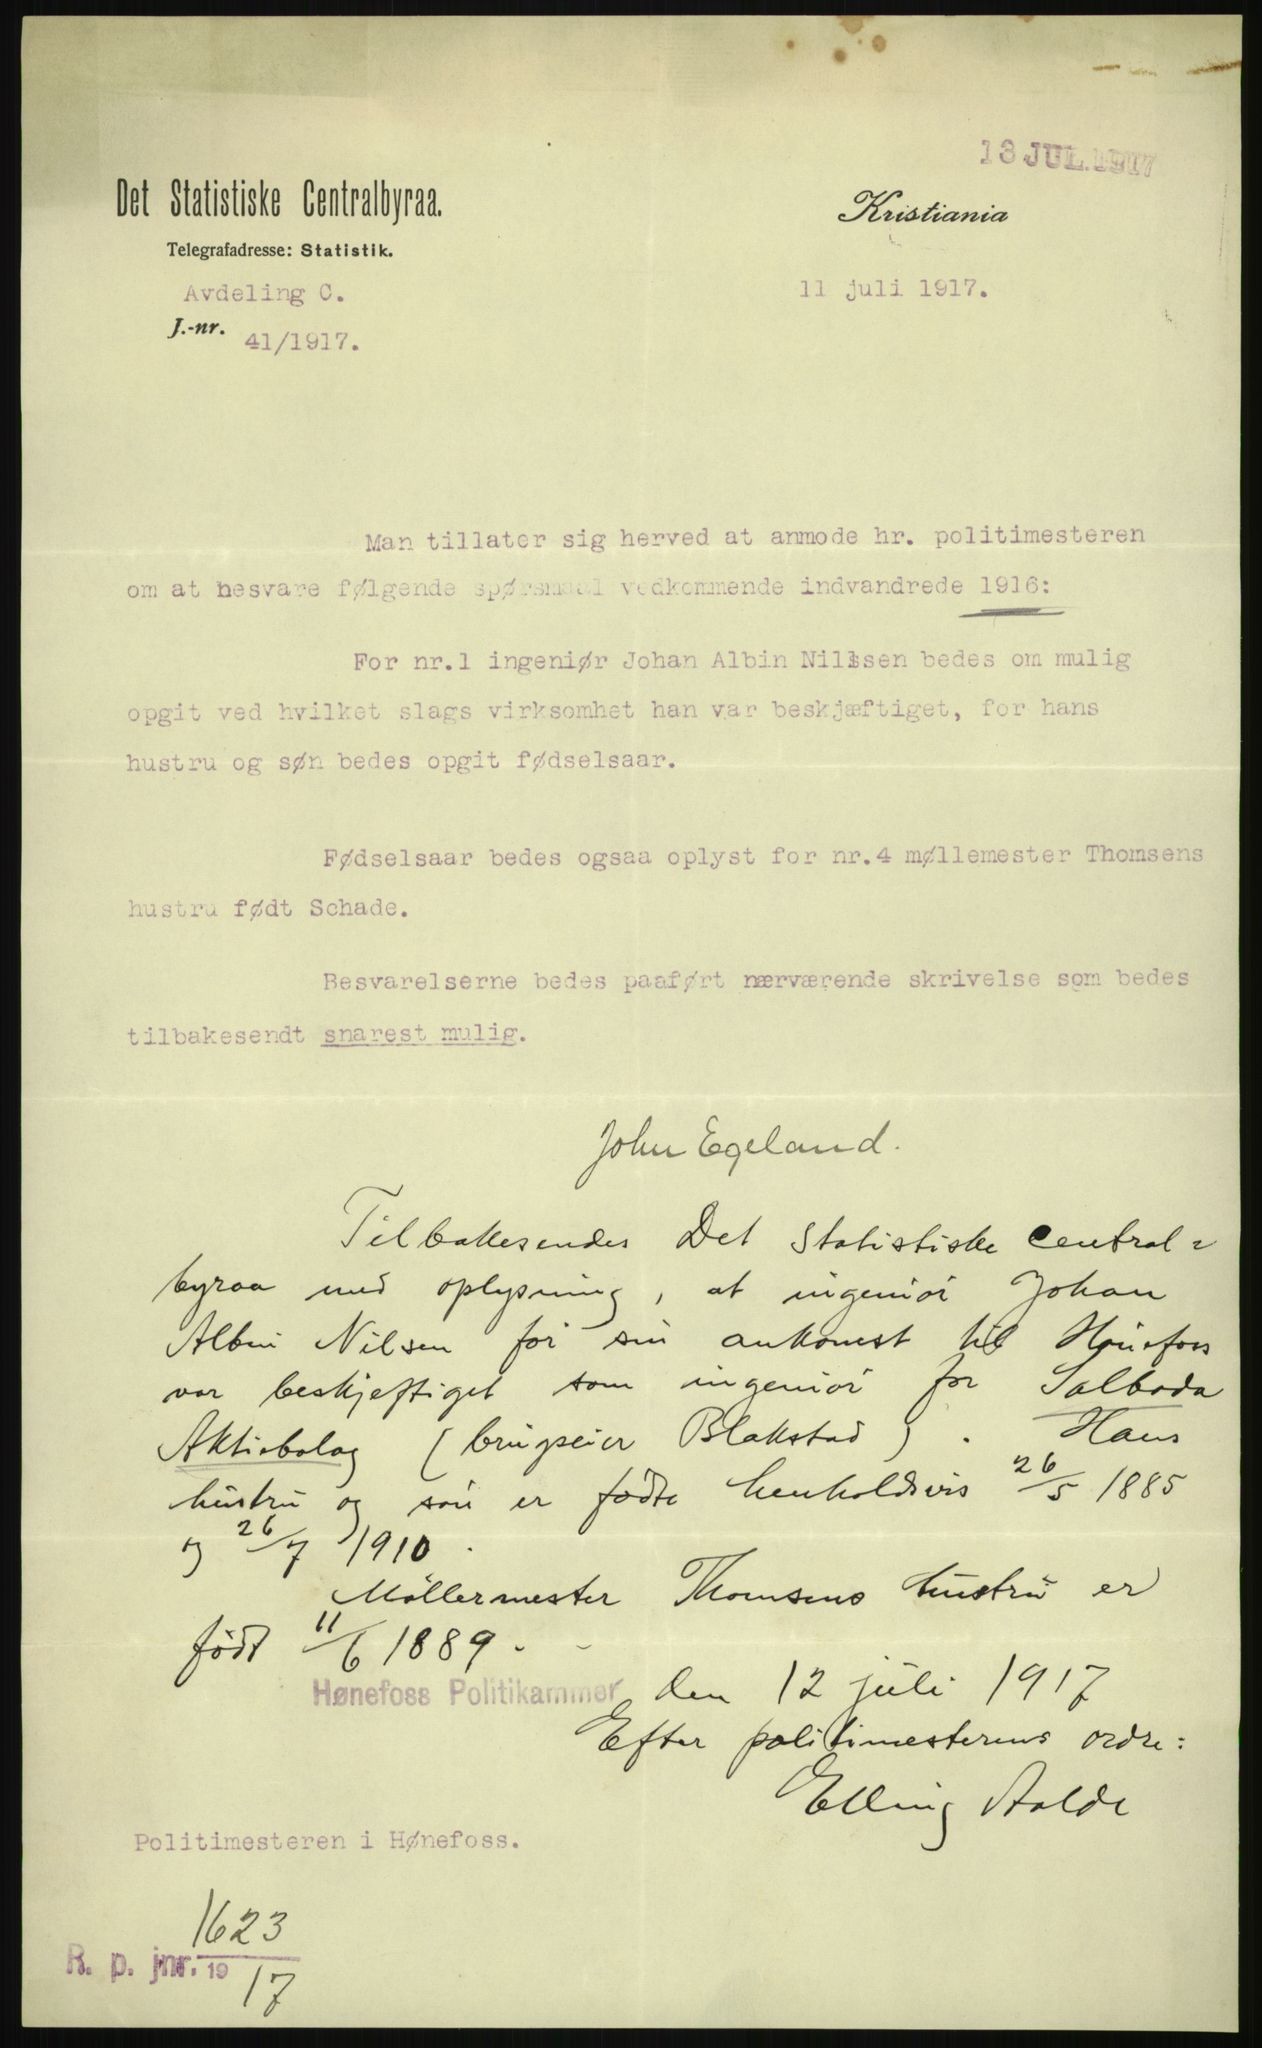 13 JUL. 1917
Det Statistiske Centralbyraa.
Telegrafadresse: Statistik.
Kristiania
Avdeling C.
11 juli 1917.
J.-nr. 41/1917.
Man tillater sig herved at anmode hr. politimesteren
om at besvare følgende spørsmaal vedkommende indvandrede 1916:
For nr.1 ingeniør Johan Albin Nilssen bedes om mulig
opgit ved hvilket slags virksomhet han var beskjæftiget, for hans
hustru og søn bedes opgit fødselsaar.
Fødselsaar bedes ogsaa oplyst for nr.4 møllemester Thomsens
hustru født Schade.
Besvarelserne bedes paaført nærværende skrivelse som bedes
tilbakesendt snarest mulig.
John Egeland.
Tilbakesendes Det statistiske central=
byraa med oplysning, at ingeniör Johan
Albin Nilsen för sin ankomst til Hönefoss
var beskjeftiget som ingeniör for Salboda
Aktiebolag (brugseier Blakstad). Hans
hustru og sön er födte henholdsvis 26/5 1885
og 26/7 1910.
Möllermester Thomsens hustru er
född 11/6 1889.
Hønefoss Politikammer den 12 juli 1917
Efter politimesterens ordre:
Elling
Politimesteren i Hønefoss.
R. p. jnr. 1623/1917